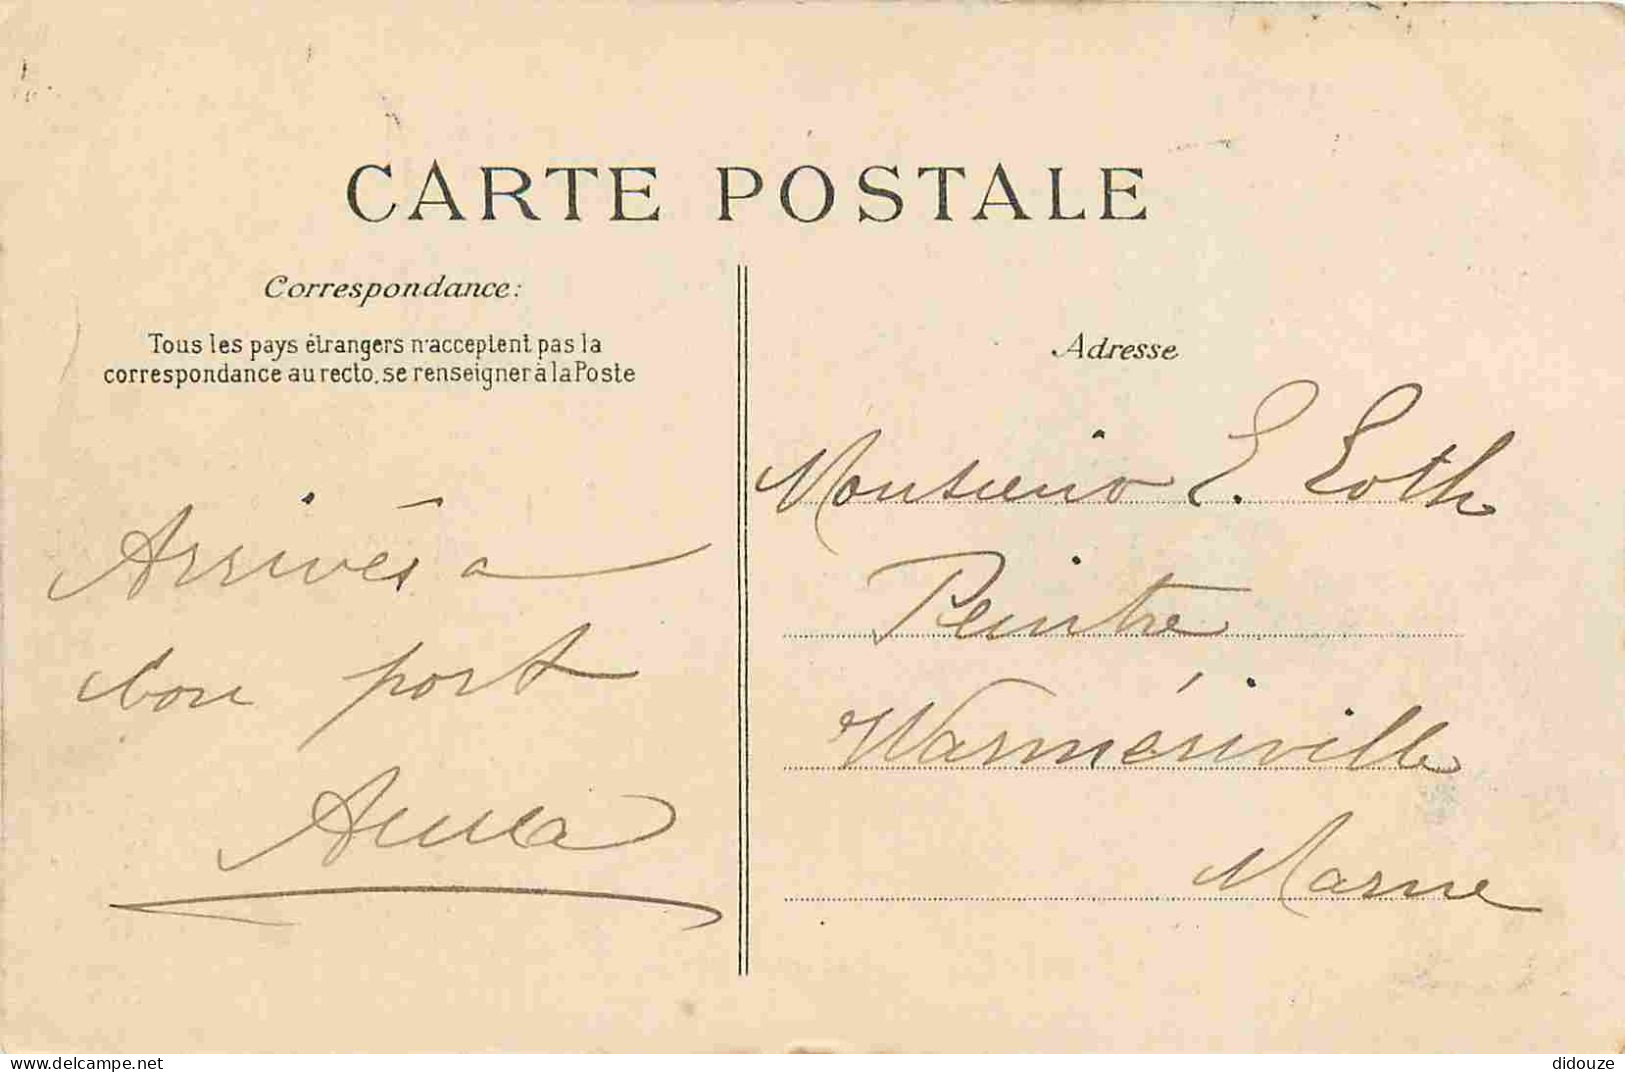 CARTE POSTALE
Correspondance:
Tous les pays étrangers n'acceptent pas la
correspondance au recto, se renseigner à la Poste
Arrivés a
bon port
Anna
Adresse
Monsieur E. Loth
Peintre
Warmériville
Marne
www.delcampe.net
didouze